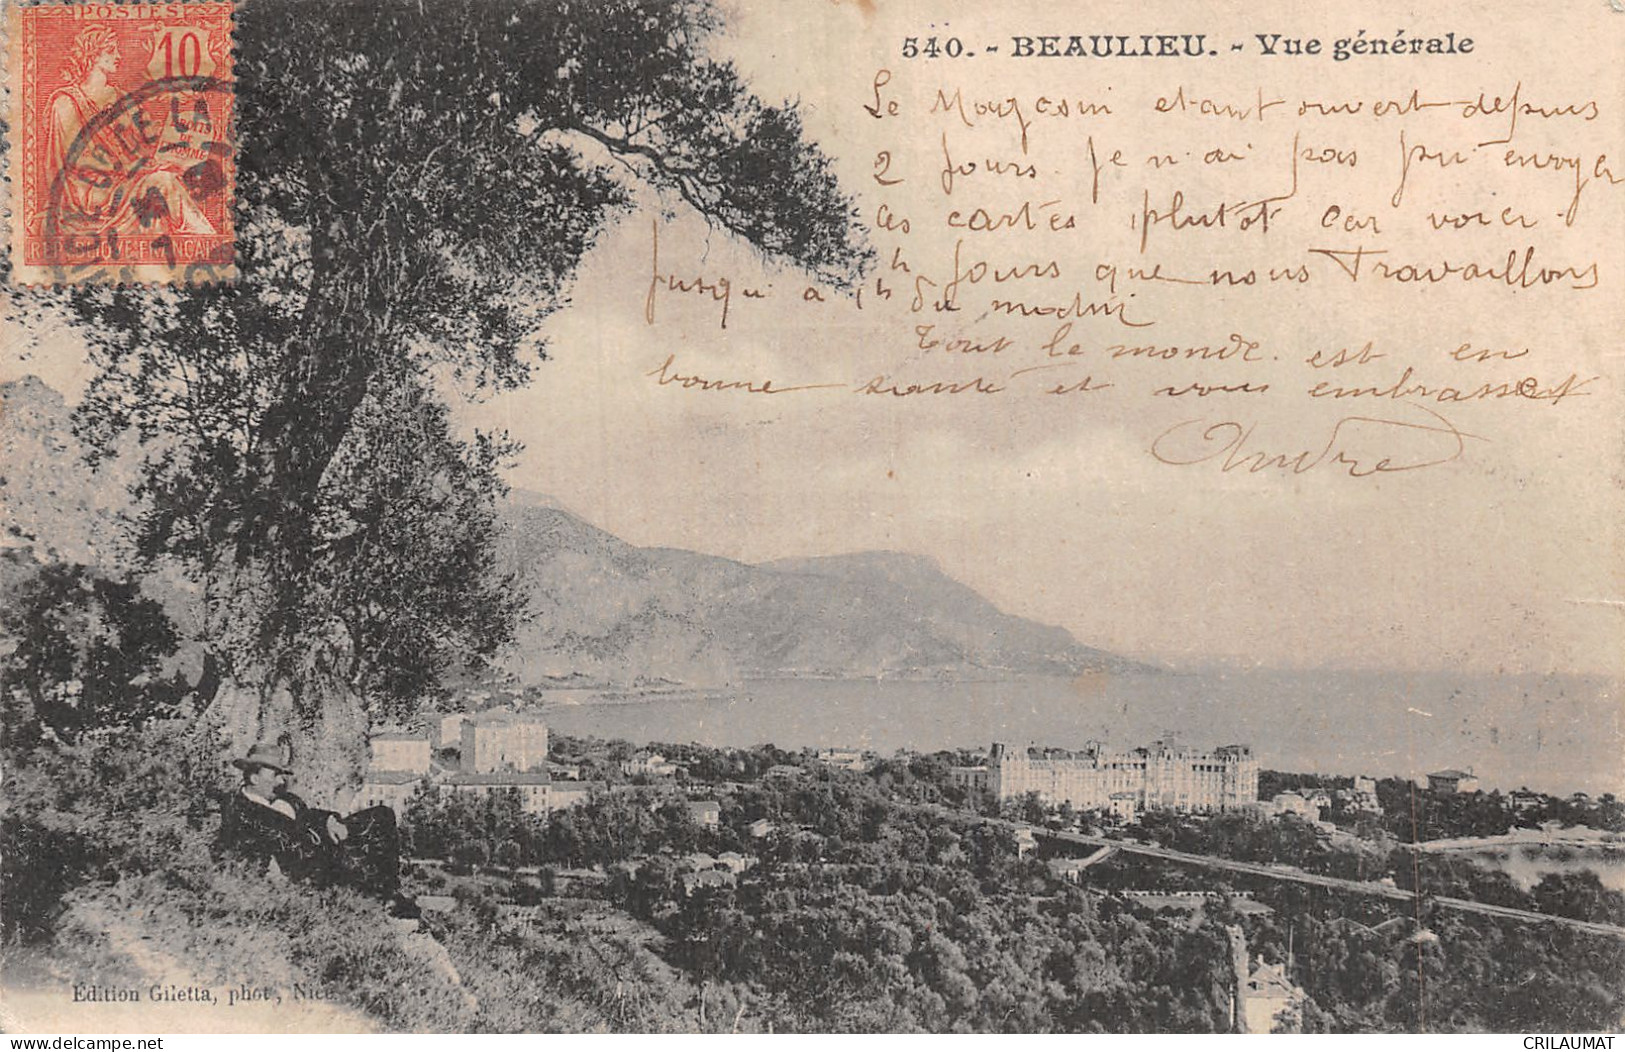 POSTES
10
RÉPUBLIQUE FRANÇAISE
540. - BEAULIEU. - Vue générale
Le Magasin etant ouvert depuis
2 Jours Je n'ai pas pu envoyer
ces cartes plutôt car voici
Jours que nous Travaillons
Jusqu'a 1h du matin
Tout le monde est en
bonne santé et vous embrasse
André
Edition Giletta, phot, Nice
www.delcampe.net
CRILAUMAT